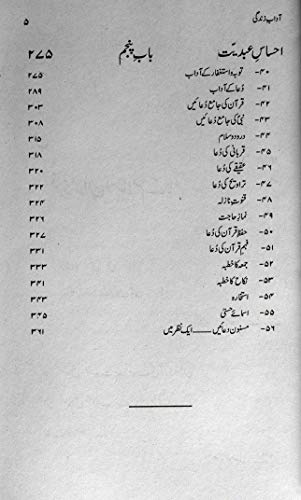 آداب زندگی ۵
احساسِ عبدیّت باب پنجم ۲۷۵
۴۰- توبہ و استغفار کے آداب ۲۷۵
۴۱- دُعا کے آداب ۲۸۹
۴۲- قرآن کی جامع دُعائیں ۳۰۳
۴۳- نبیؐ کی جامع دُعائیں ۳۰۸
۴۴- درود و سلام ۳۱۵
۴۵- قربانی کی دُعا ۳۱۸
۴۶- عقیقے کی دُعا ۳۲۰
۴۷- تراویح کی دُعا ۳۲۲
۴۸- قنوتِ نازلہ ۳۲۴
۴۹- نمازِ حاجت ۳۲۶
۵۰- حفظِ قرآن کی دُعا ۳۲۷
۵۱- فہمِ قرآن کی دُعا ۳۳۱
۵۲- جمعہ کا خطبہ ۳۳۳
۵۳- نکاح کا خطبہ ۳۴۱
۵۴- استخارہ ۳۴۳
۵۵- اسمائے حسنٰی ۳۴۵
۵۶- مسنون دعائیں ــــــ ایک نظر میں ۳۶۱